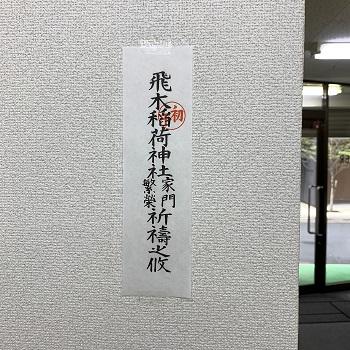 飛木稲荷神社家門繁榮祈禱之攸
初午